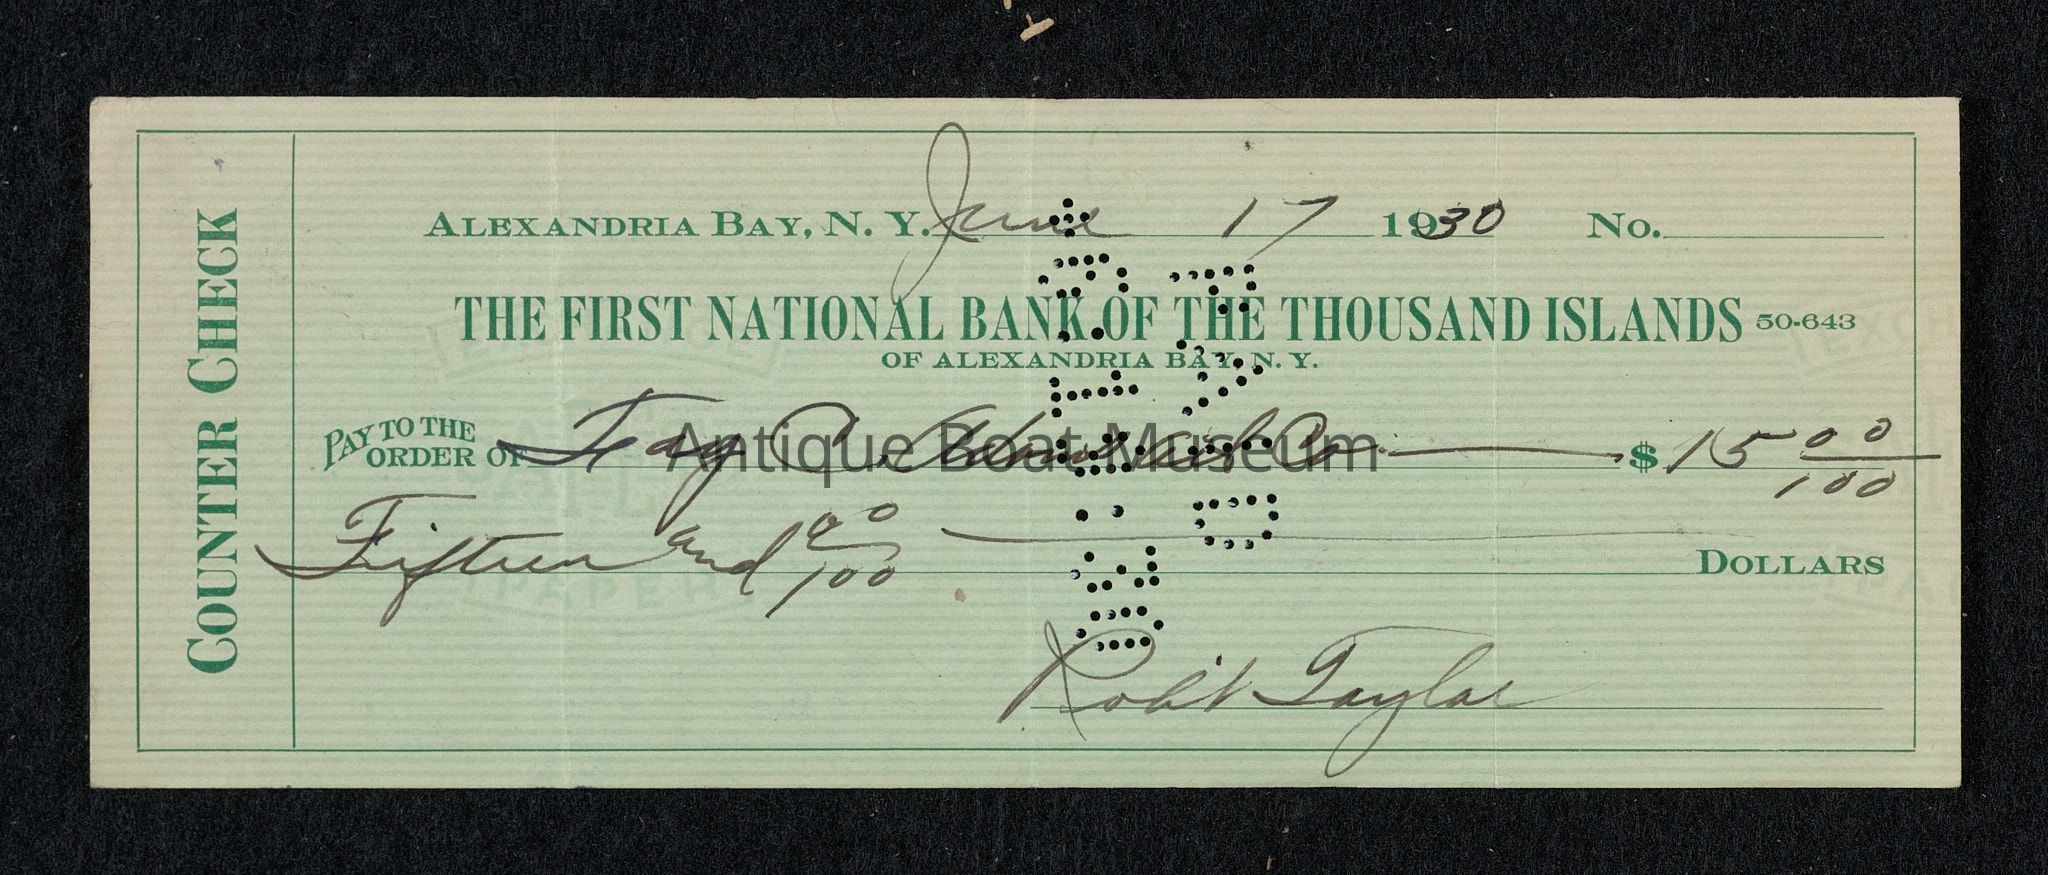 COUNTER CHECK
ALEXANDRIA BAY, N. Y. June 17 1930 No.
THE FIRST NATIONAL BANK OF THE THOUSAND ISLANDS 50-643
OF ALEXANDRIA BAY, N. Y.
PAY TO THE ORDER OF Fay $ 15 00/100
Antique Boat Museum
Fifteen and 00/100 DOLLARS
Rob't Taylor